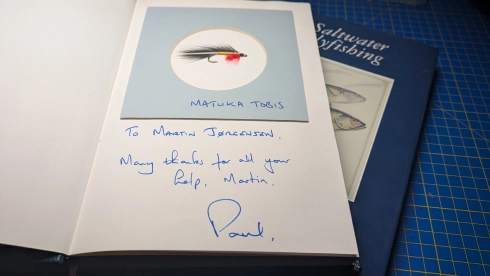 Saltwater
lyfishing
MATUKA TOBIS
To MARTIN JØRGENSEN.
Many thanks for all your
help, Martin.
Paul.